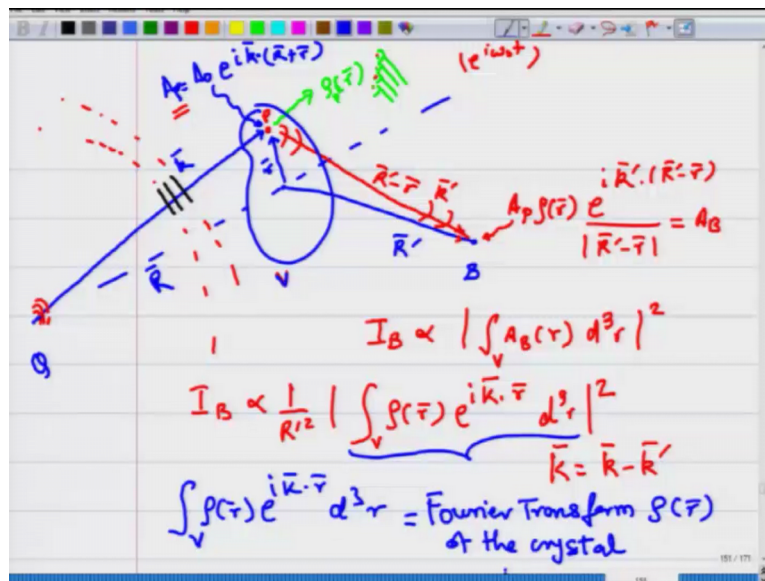 A_P = A_0 e^{i k̄·(R̄+r̄)}
ρ_P(r̄)
(e^{iω_0t})
P
k̄
r̄
R̄'-r̄
k̄'
A_P ρ(r̄) e^{i k̄'·(R̄'-r̄)} / |R̄'-r̄| = A_B
R̄
R̄'
B
V
Q
I_B ∝ | ∫_V A_B(r) d³r |²
I_B ∝ 1/R'² | ∫_V ρ(r̄) e^{i K̄·r̄} d³r |²
K̄ = k̄ - k̄'
∫_V ρ(r̄) e^{i K̄·r̄} d³r = Fourier Transform ρ(r̄)
of the crystal
151 / 171